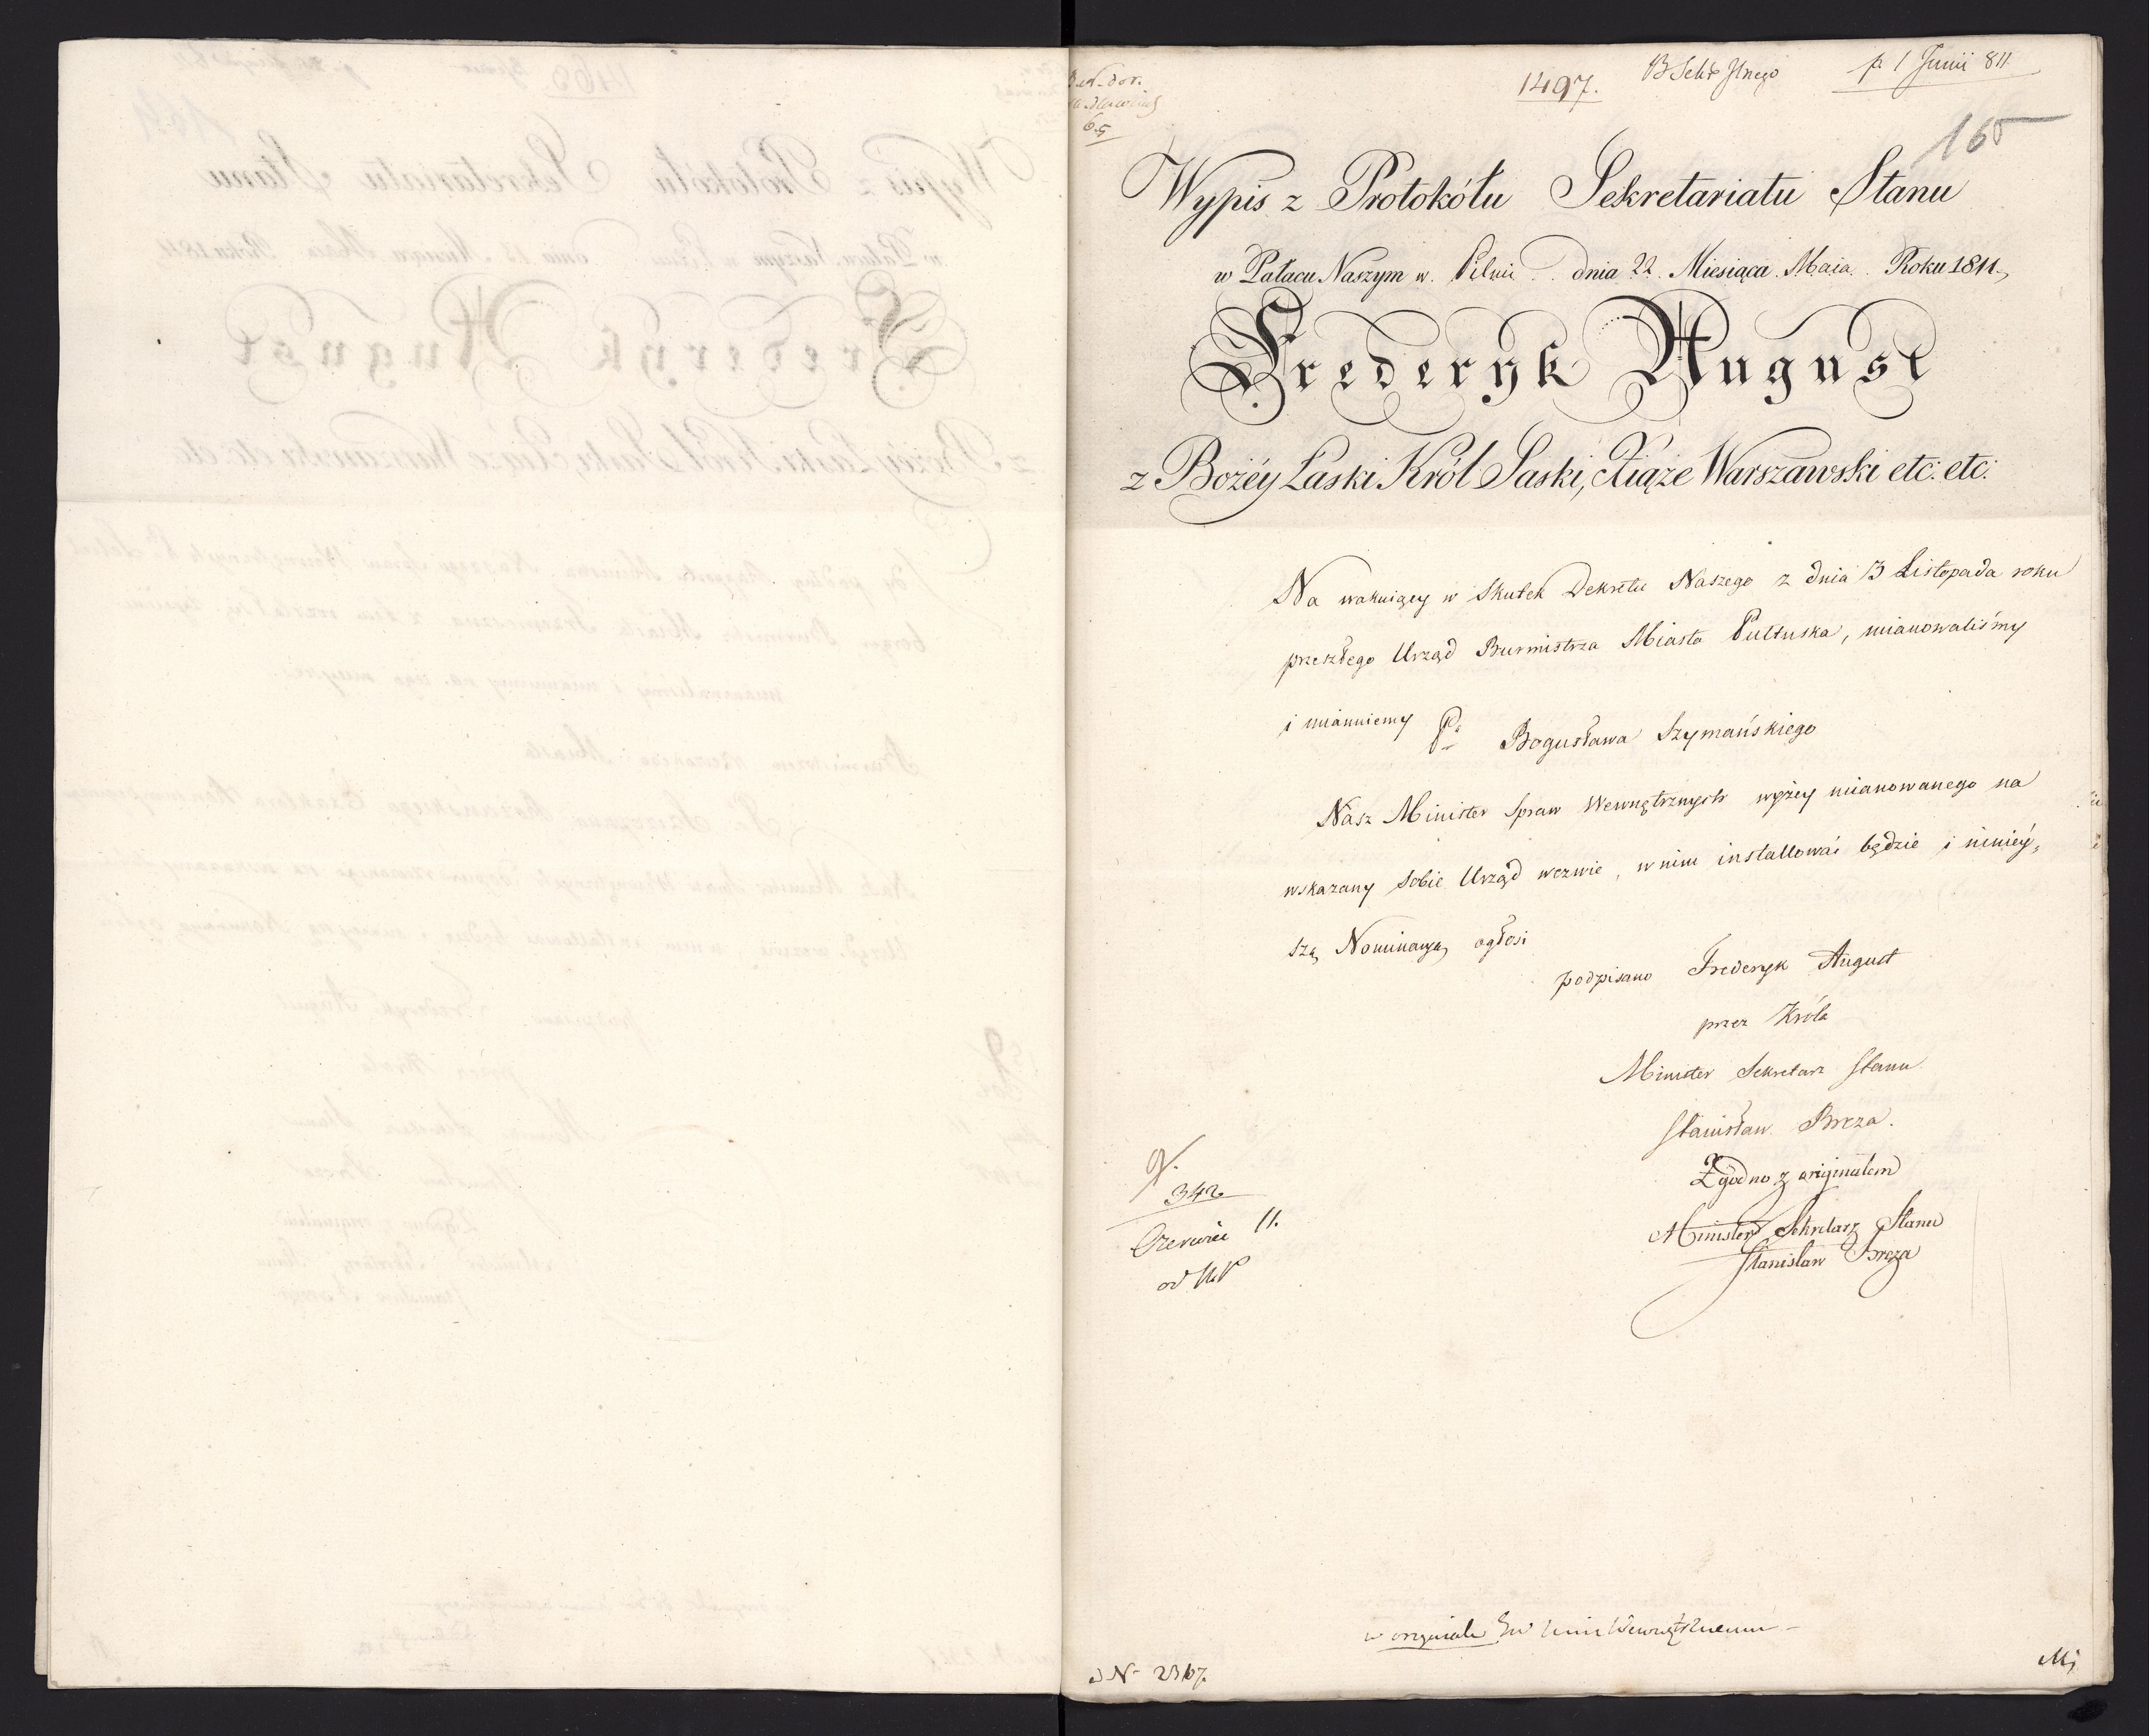 1497.
p. 1 Junii 811
165
65
Wypis z Protokółu Sekretariatu Stanu
w Pałacu Naszym w. Pilnic dnia 22. Miesiąca Maia Roku 1811.
Frederyk August
z Bożéy Łaski Król Saski, Xiąże Warszawski etc. etc.
Na wakuiący w skutek Dekretu Naszego z dnia 3 Listopada roku
przeszłego Urząd Burmistrza Miasta Pułtuska, mianowaliśmy
i mianuiemy P. Bogusława Szymańskiego
Nasz Minister Spraw Wewnętrznych wyżey mianowanego na
wskazany sobie Urząd wezwie, w nim installować będzie i ninieỳ,
szą Nominacyą ogłosi
podpisano Frederyk August
przez Króla
Minister Sekretarz Stanu
Stanisław Breza.
Zgodno z originałem
Minister Sekretarz Stanu
Stanisław Breza
342
Czerwiec 11.
w originale
N 2367.